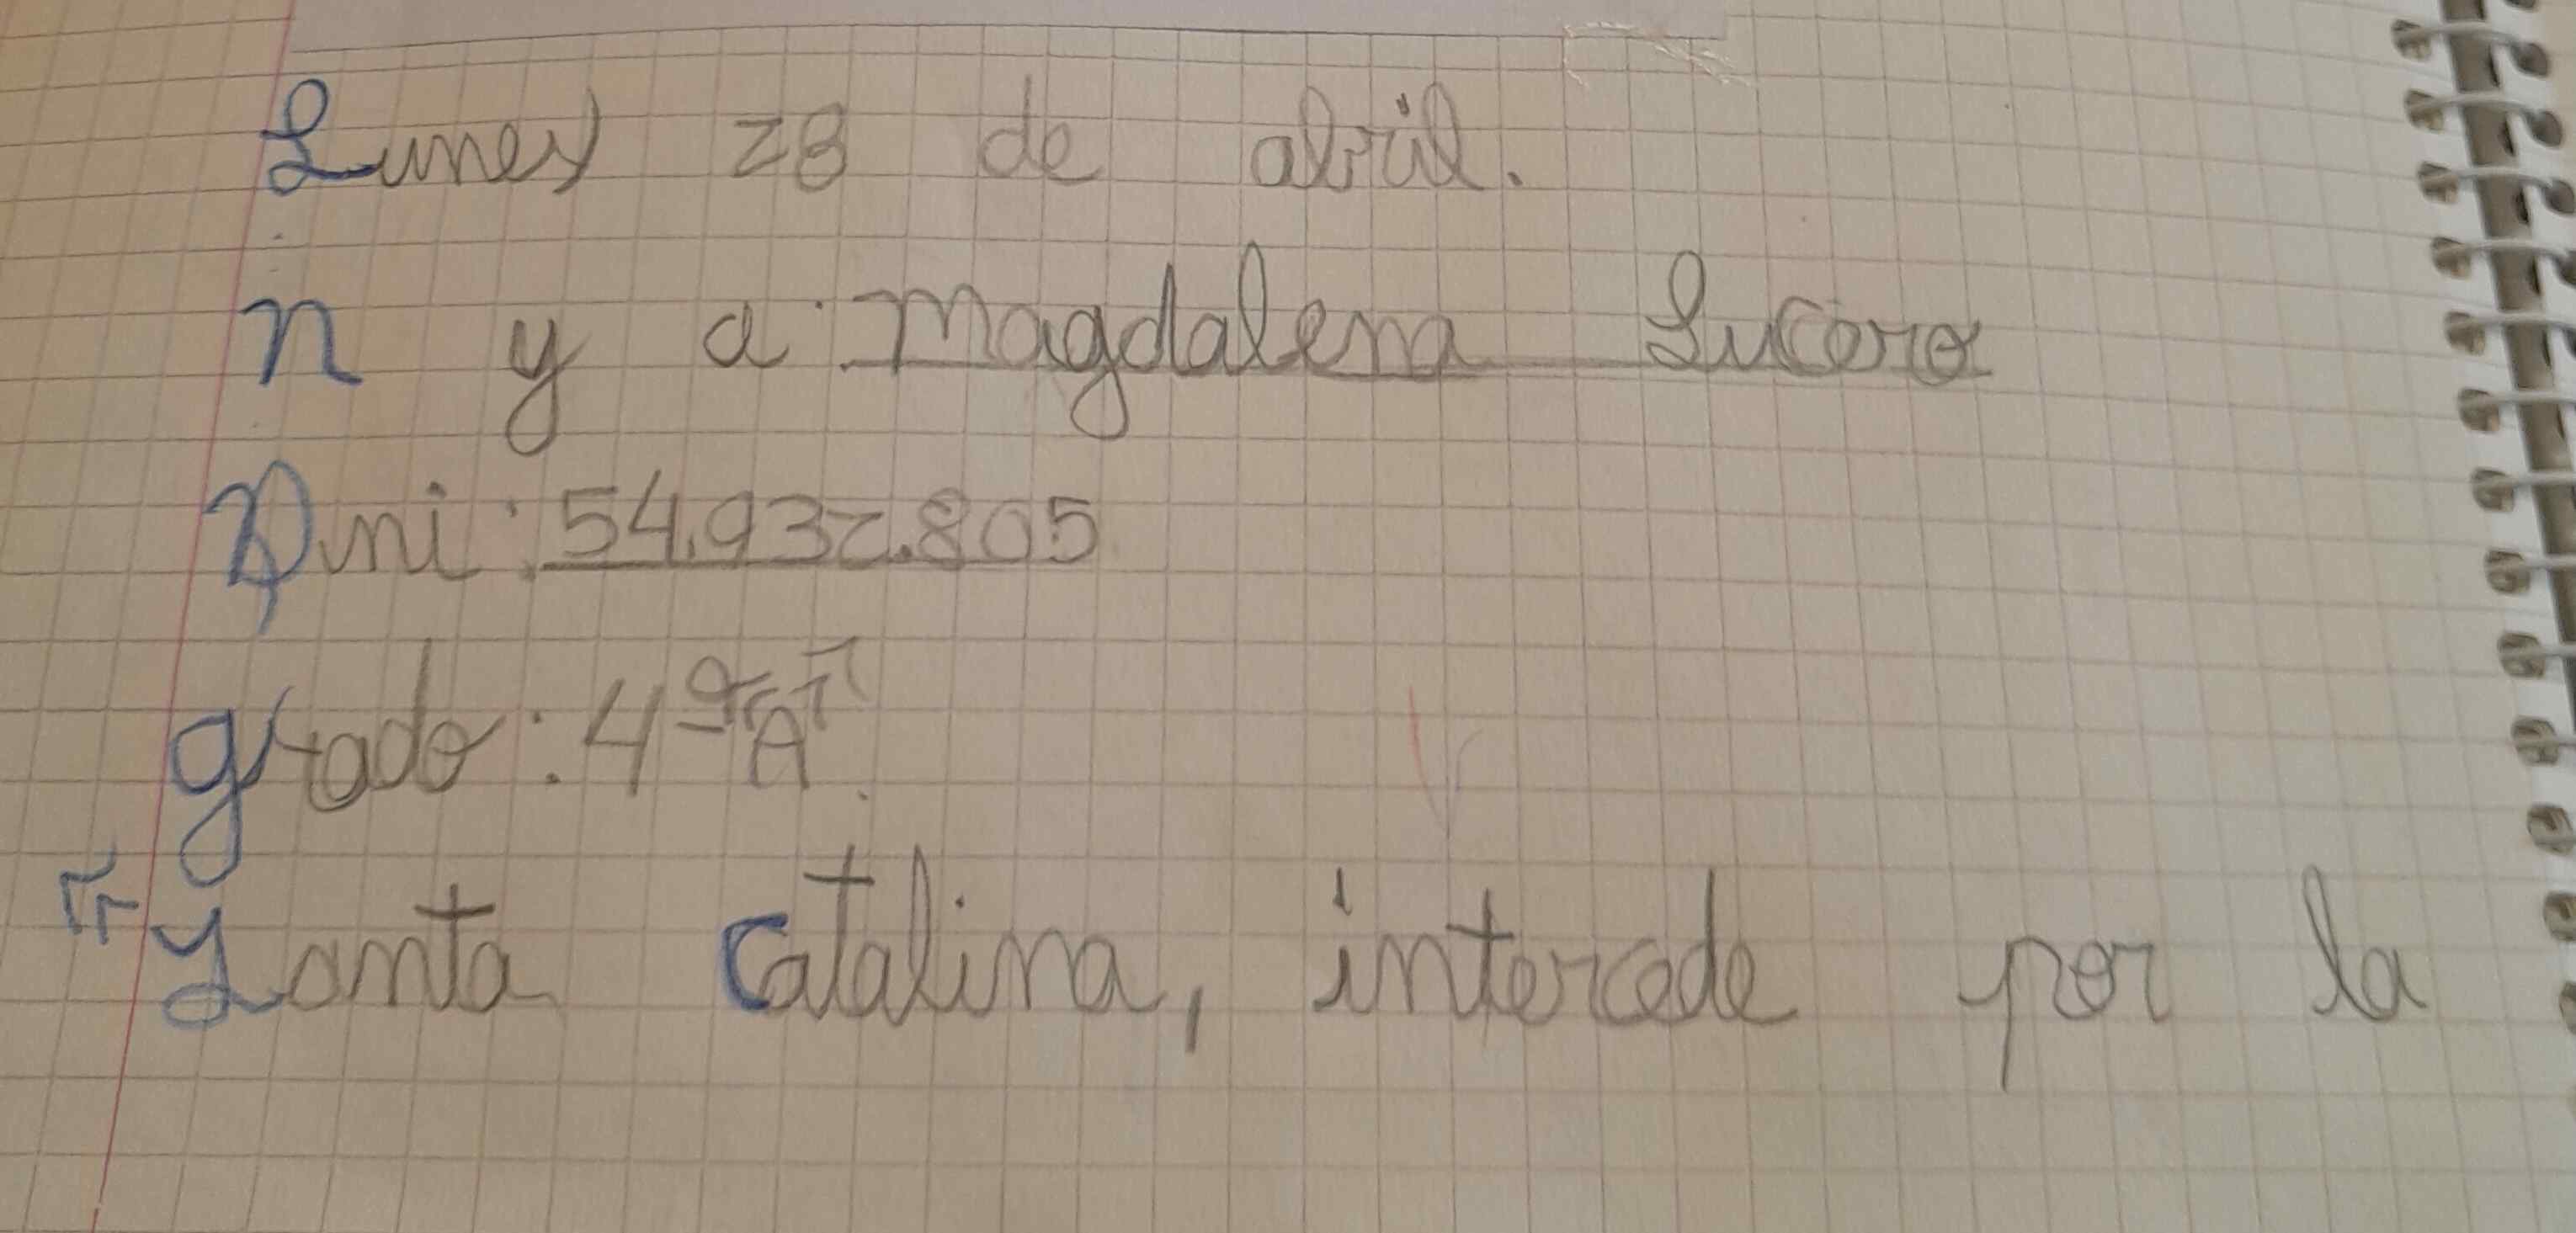 Lunes 28 de abril.
n y a: Magdalena Lucero
Dni: 54.932.805
grado: 4º "A".
"Santa Catalina, intercede por la